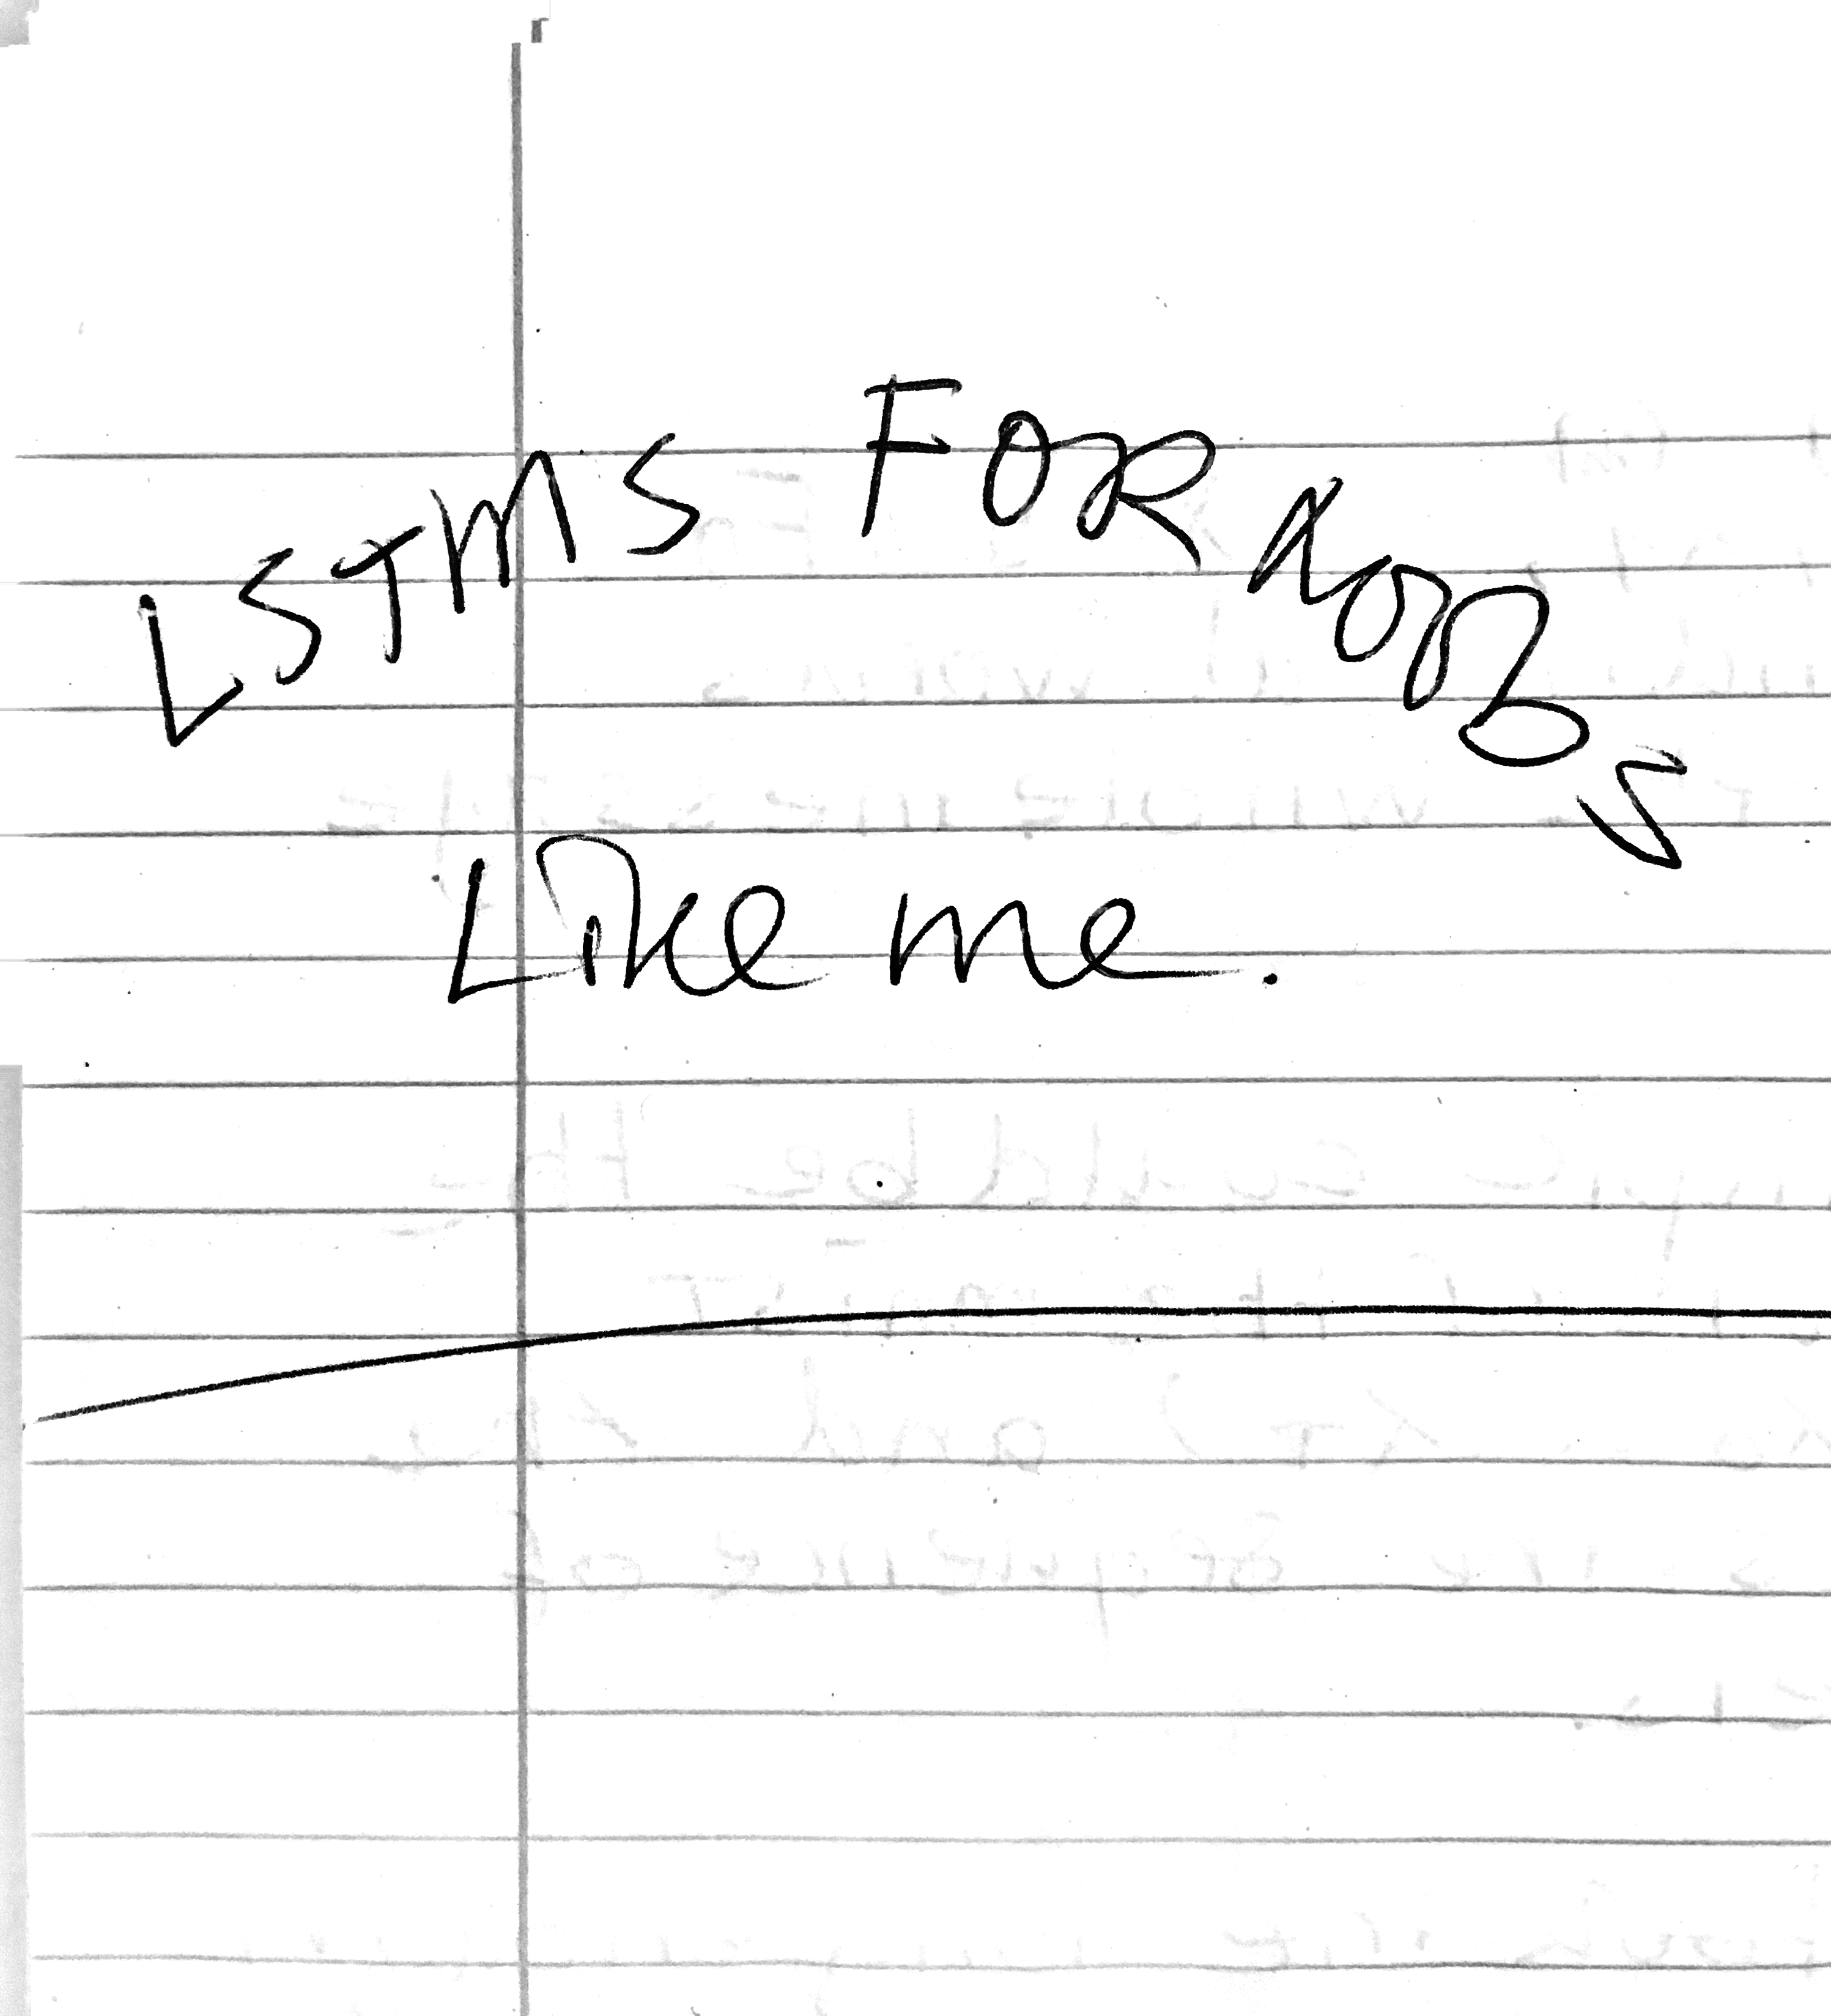 LSTMS FOR NOOBS
Like me.